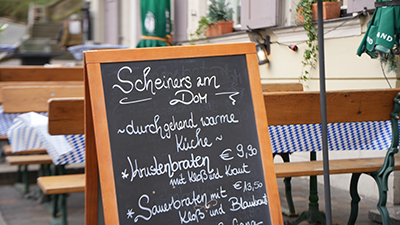 Scheiners am
Dom
~durchgehend warme
Küche~
*Krustenbraten € 9,90
mit Kloß und Kraut
*Sauerbraten € 13,50
mit Kloß und Blaukraut